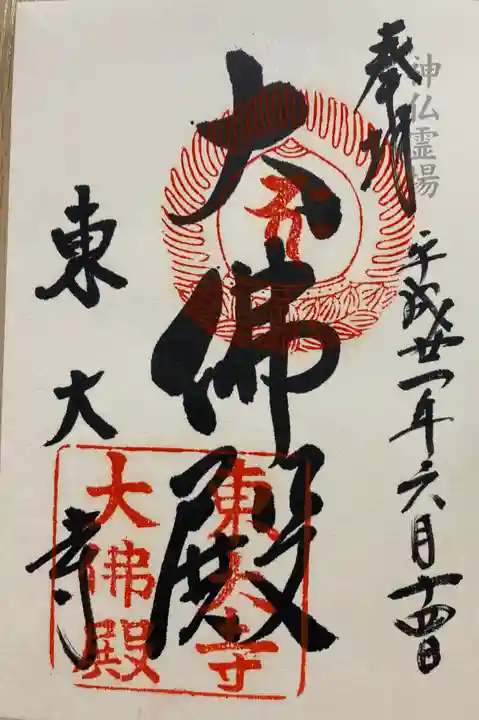 神仏霊場
奉拝
平成廿一年六月十四日
大佛殿
東大寺
東大寺
大佛殿